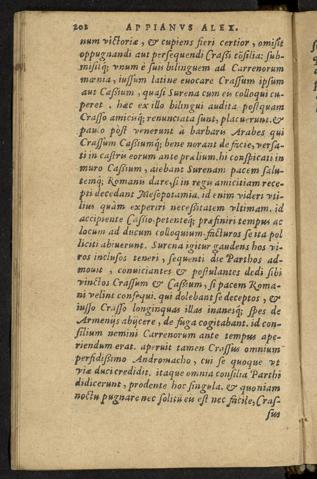 202 APPIANVS ALEX.
num victoriæ, & cupiens fieri certior, omisit
oppugnandi aut persequendi Crassi cōsilia: sub-
misitq; vnum è suis bilinguem ad Carrenorum
mœnia, iussum latine euocare Crassum ipsum
aut Cassium, quasi Surena cum eis colloqui cu-
peret. hæc ex illo bilingui audita postquam
Crasso amicisq; renunciata sunt, placuerunt. &
paulo pòst venerunt à barbaris Arabes qui
Crassum Cassiumq; bene norant de facie, versa-
ti in castris eorum ante prælium. hi conspicati in
muro Cassium, aiebant Surenam pacem salu-
temq; Romanis dare, si in regis amicitiam rece-
pti decedant Mesopotamia. id enim videri vti-
lius quàm experiri necessitatem vltimam. id
accipiente Cassio, petenteq; præfiniri tempus ac
locum ad ducum colloquium, facturos se ita pol
liciti abiuerunt. Surena igitur gaudens hos vi-
ros inclusos teneri, sequenti die Parthos ad-
mouit, conuiciantes & postulantes dedi sibi
vinctos Crassum & Cassium, si pacem Roma-
ni velint consequi. qui dolebant se deceptos, &
iusso Crasso longinquas illas inanesq; spes de
Armenijs abijcere, de fuga cogitabant. id con-
silium nemini Carrenorum ante tempus ape-
riendum erat. aperuit tamen Crassus omnium
perfidissimo Andromacho, cui se quoque vt
viæ duci credidit. itaque omnia consilia Parthi
didicerunt, prodente hoc singula. & quoniam
noctu pugnare nec solitū eis est nec facile, Cras-
sus